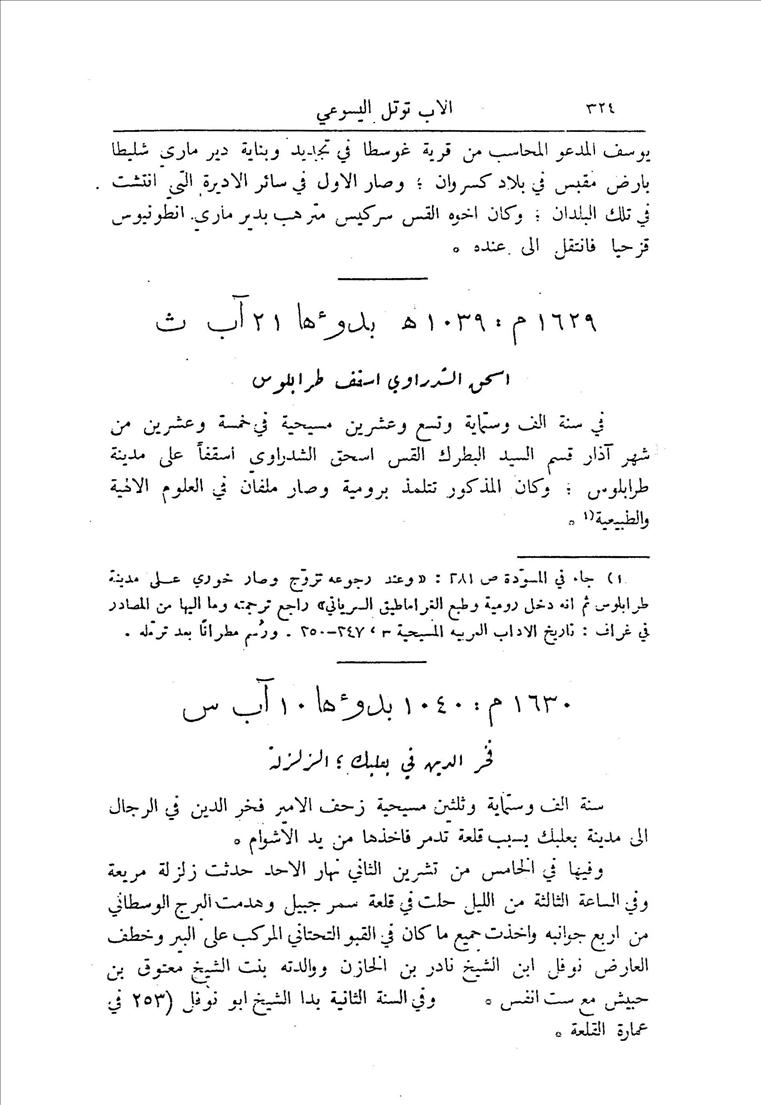 ٣٢٤ الاب توتل اليسوعي
يوسف المدعو المحاسب من قرية غوسطا في تجديد وبناية دير ماري شليطا
بارض مقبس في بلاد كسروان ؛ وصار الاول في سائر الاديرة التي انتشت
في تلك البلدان ؛ وكان اخوه القس سركيس مترهب بدير ماري انطونيوس
قزحيا فانتقل الى عنده ٠
١٦٢٩ م : ١٠٣٩ ه بدوءها ٢١ آب ث
اسحق الشدراوي اسقف طرابلوس
في سنة الف وستماية وتسع وعشرين مسيحية في خمسة وعشرين من
شهر آذار قسم السيد البطرك القس اسحق الشدراوي أسقفاً على مدينة
طرابلوس ؛ وكان المذكور تتلمذ برومية وصار ملفان في العلوم الالهية
والطبيعية (١ ٠
١) جاء في المسوّدة ص ٢٨١ : «وعند رجوعه تزوّج وصار خوري عــلى مدينة
طرابلوس ثم انه دخل رومية وطبع الغراماطيق السرياني» راجع ترجمته وما اليها من المصادر
في غراف : تاريخ الاداب العربيه المسيحية ٣ ، ٢٤٧–٢٥٠ . ورُسم مطرانًا بعد ترمّله .
١٦٣٠ م : ١٠٤٠ بدوءها ١٠ آب س
فخر الدين في بعلبك ؛ الزلزلة
سنة الف وستماية وثلثين مسيحية زحف الامير فخر الدين في الرجال
الى مدينة بعلبك بسبب قلعة تدمر فاخذها من يد الاشوام ٠
وفيها في الخامس من تشرين الثاني نهار الاحد حدثت زلزلة مريعة
وفي الساعة الثالثة من الليل حلت في قلعة سمر جبيل وهدمت البرج الوسطاني
من اربع جوانبه واخذت جميع ما كان في القبو التحتاني المركب على البير وخطف
العارض نوفل ابن الشيخ نادر بن الخازن ووالدته بنت الشيخ معتوق بن
حبيش مع ست انفس ٠ وفي السنة الثانية بدا الشيخ ابو نوفل (٢٥٣ في
عمارة القلعة ٠